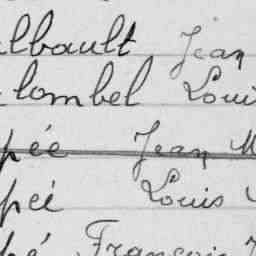 lbault Jean
lombel Loui
pée Jean M
pei Louis
bé François J